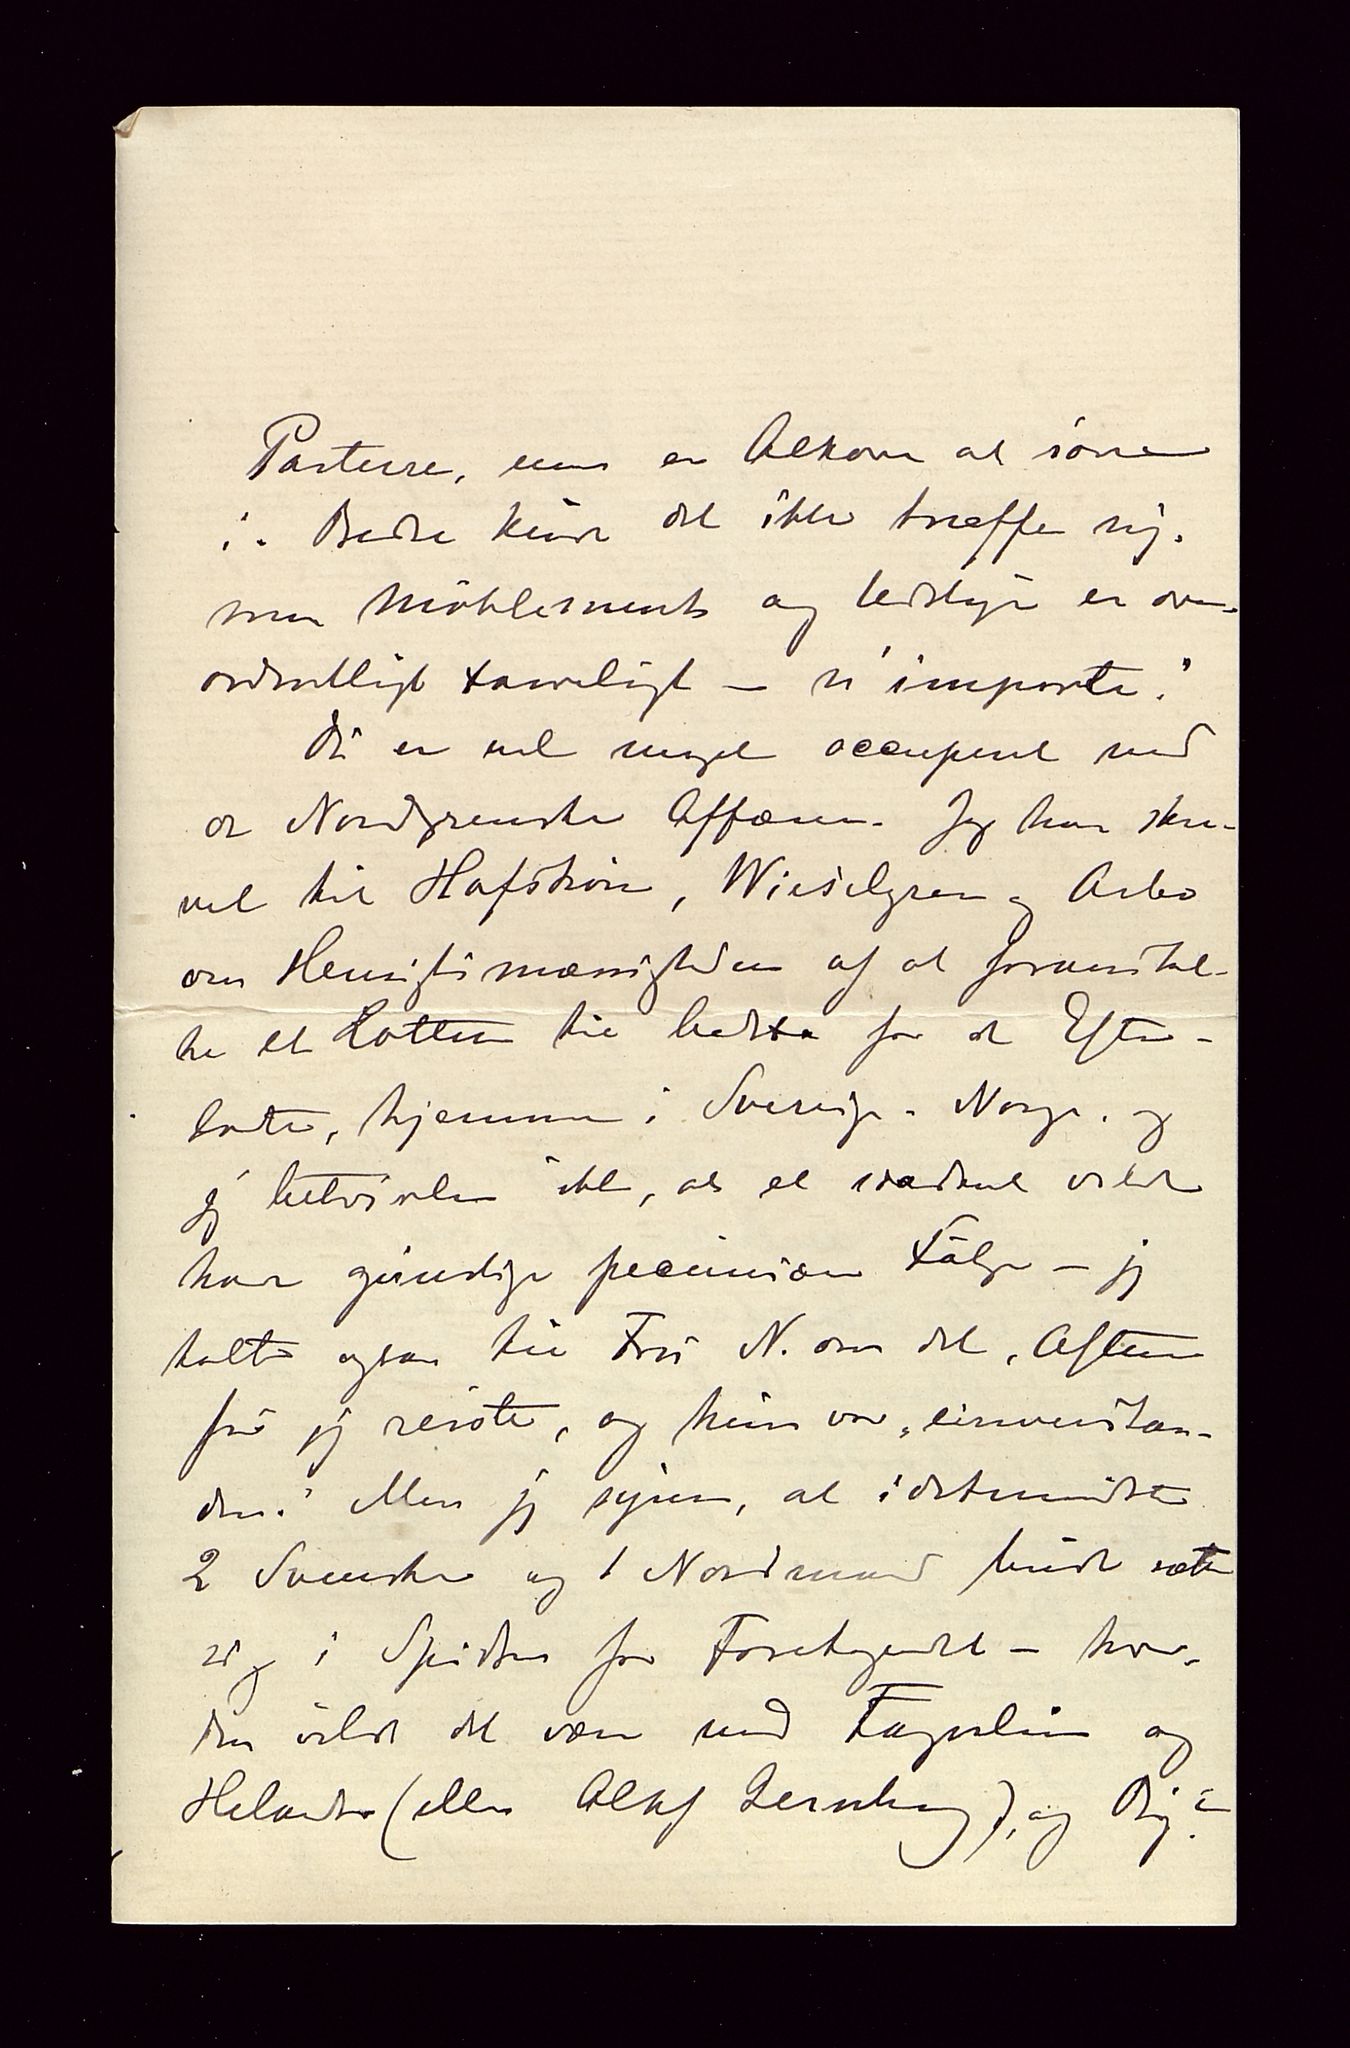 Parterre, men en Alkove at sove
i. Bedre kunde det ikke træffe sig.
men Möblement og Udstyr er over-
ordentligt tarveligt – n'importe!
Du er vel meget occuperet med
de Nordgrenske Affærer. Jeg har skre-
vet til Hafström, Wieselgren og Arbo
om Hensigtsmæssigheden af at foranstal-
te et Lotteri til bedste for de Efter-
ladte, hjemme i Sverige-Norge, og
jeg betvivler ikke, at et saadant vilde
have gunstige pecuniære Følger – jeg
talte ogsaa til Fru N. om det, Aftenen
før jeg reiste, og hun var „einverstan-
den." Men jeg synes, at idetmindste
2 Svenske og 1 Nordmand burde sætte
sig i Spidsen for Foretagendet – hvor-
dan vilde det være med Fagerlin og
Helander (eller Oluf Jernberg), og Dig?